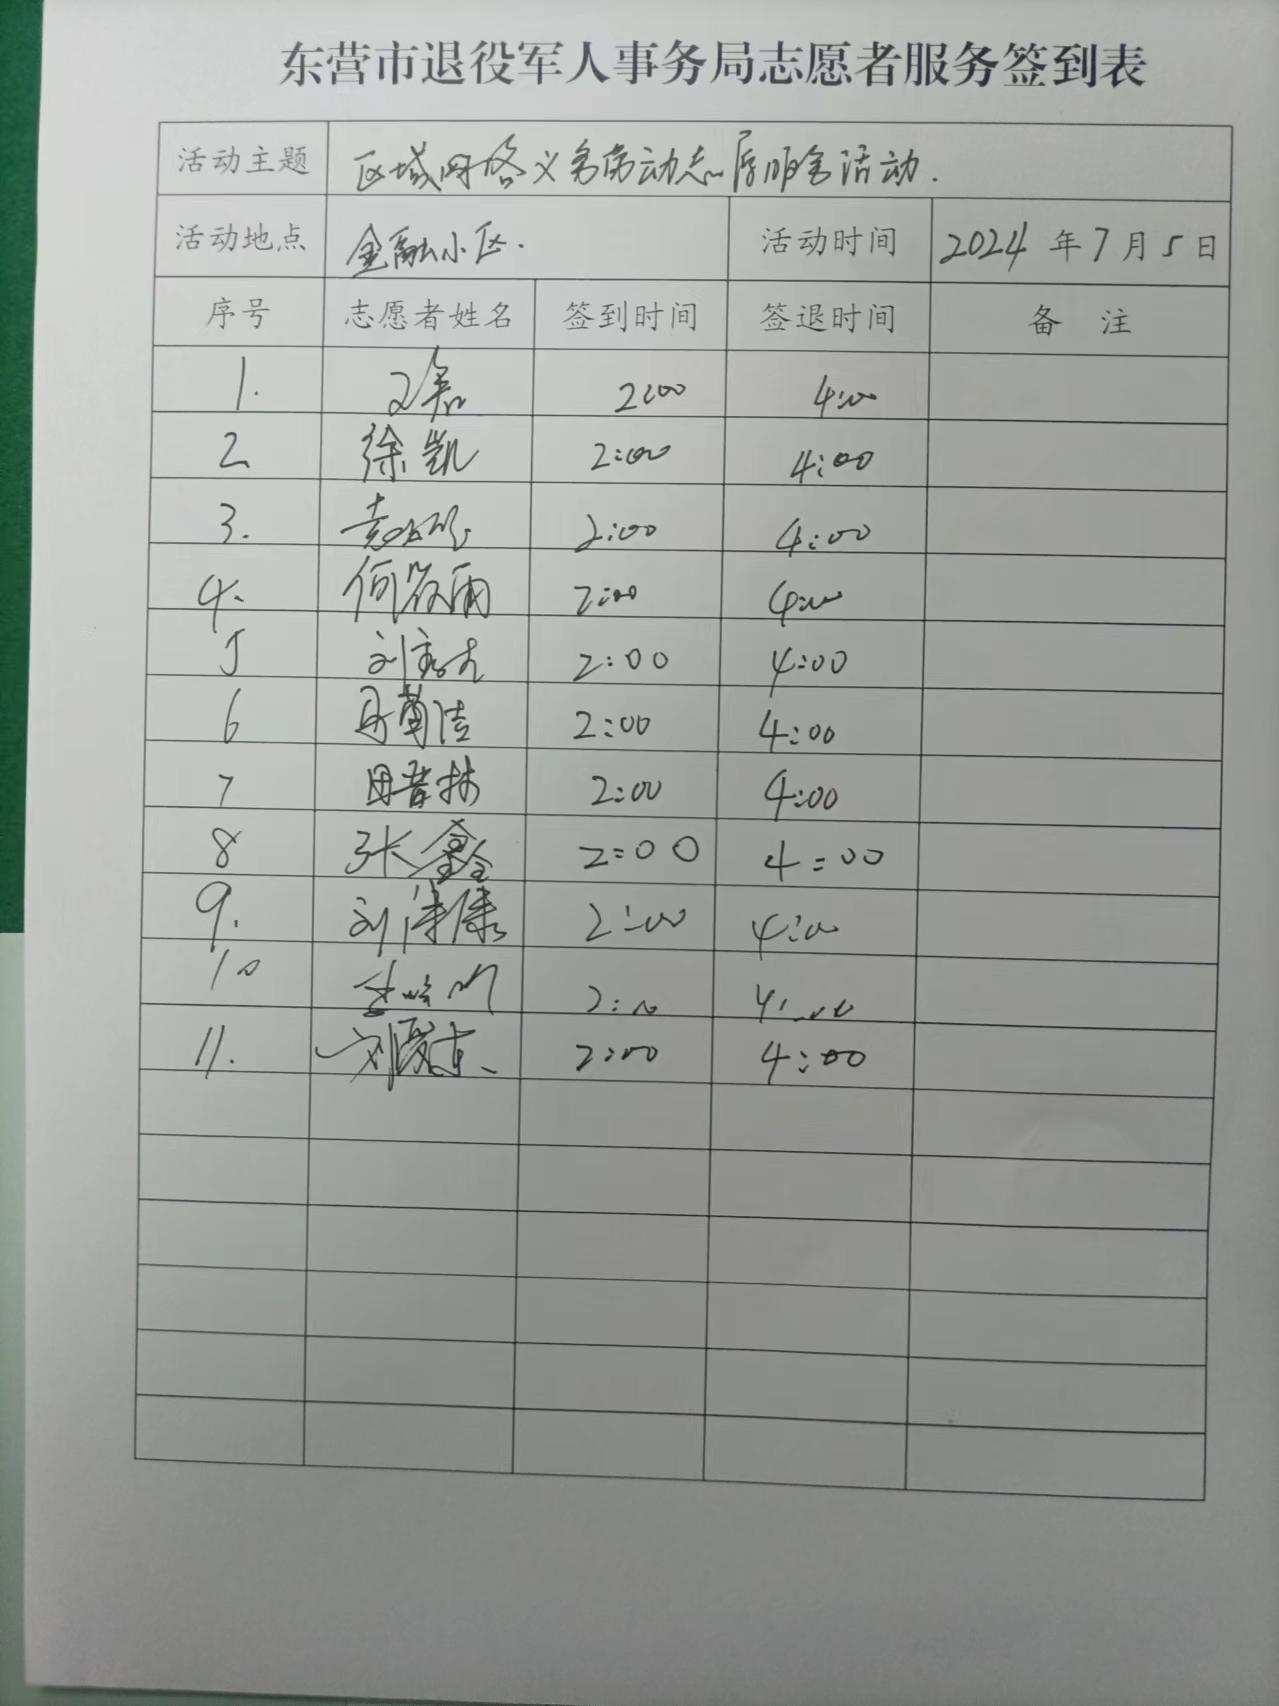 东营市退役军人事务局志愿者服务签到表
活动主题 区域网格义务劳动志愿服务活动.
活动地点 金融小区. 活动时间 2024年7月5日
序号 志愿者姓名 签到时间 签退时间 备 注
1. 2:00 4:00
2 徐凯 2:00 4:00
3. 2:00 4:00
4. 2:00 4:00
5 2:00 4:00
6 2:00 4:00
7 2:00 4:00
8 张鑫 2:00 4:00
9. 2:00 4:00
10 2:00 4:00
11. 2:00 4:00